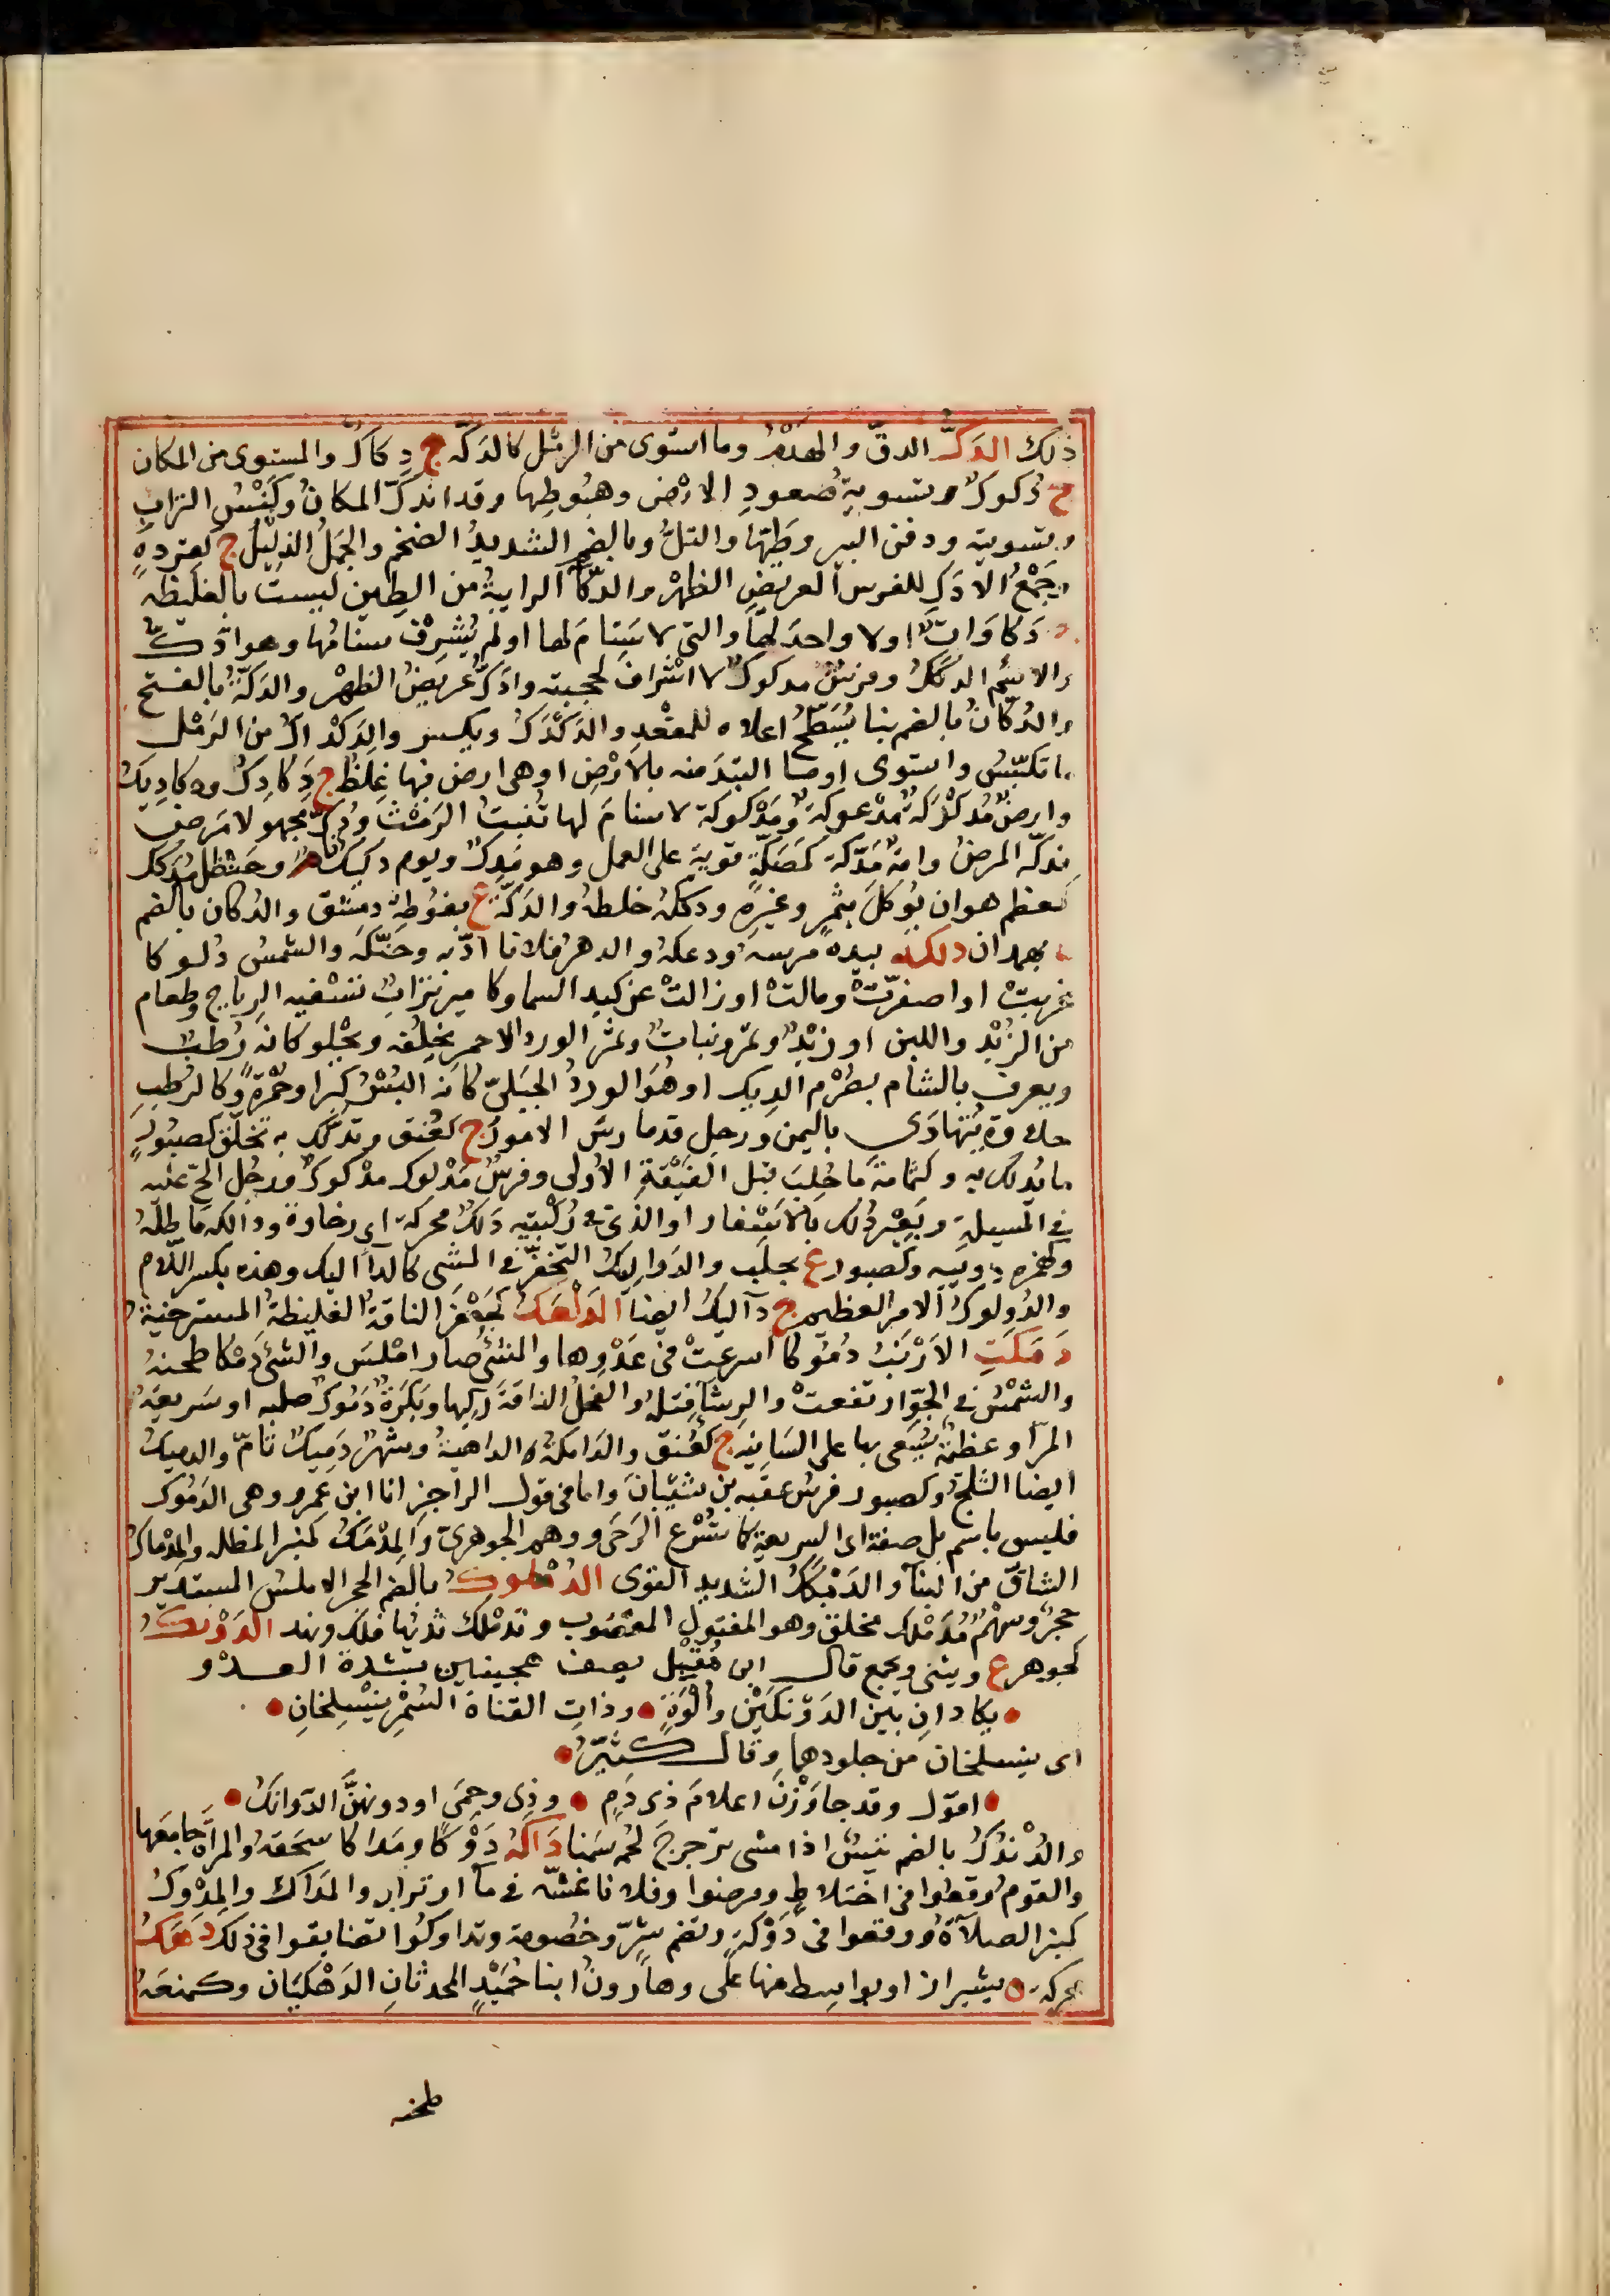 ذلك الدَكّ الدقّ والهَدْمُ وما استوى من الرمْل كالدَكّه ج دِكاكُ والمستوى من المكان
ج دُكوكٌ وتسويةُ صُعودِ الارْضِ وهبُوطِها وقد اندَكّ المكانُ وكَنْسُ التراب
وتسويته ودفن البير وطمّها والتلُّ وبالضم الشديدُ الضخم والجَمَلُ الذليْلُ ج كقِرَدهٍ
وجَمْعُ الادَكِ للفرس العريضِ الظهْر والدّكّا الرابيةُ من الطين ليستْ بالغليظه
ج دَكاوَاتٌ اولا واحدَ لها والتى لا سَنامَ لها اولم يُشرِفْ سنامُها وهو ادَكُّ
والاسْم الدكَكُ وفرسٌ مدكوكٌ لا اشْرافَ لحجبته وادَكُّ عَريضُ الظهْر والدَكّةُ بالفتح
والدُكّانُ بالضم بنا يُسَطّحُ اعلاه للمقْعدِ والدَكْدَكُ ويكسر والدَكْداكُ من الرَمْل
ما تكبّسَ واستوى او ما التبَدَ منه بالارْضِ او هى ارض فيها غِلظٌ ج دَكادِكُ ودكادِيكُ
وارضٌ مُدَكْدَكةٌ مدْعوكةٌ ومَدْكوكة لا سنامَ لها تُنبتُ الرَمْثَ ودُكّ مجهولا مَرِضَ
ودكّه المرضُ وامةٌ مِدَكّة كمِصَكّةٍ قوية على العمل وهو مِدكٌّ ويوم دكيكٌ تامٌّ وحنظل مُدكّك
كمعظم هو ان يُوكَلَ بتمرٍ وغيرهِ ودكّكهُ خلطهُ والدَكّةُ ع بغُوطةِ دمشق والدُكان بالضم
ة بهمدان دلكه بيده مرسهُ ودعكهُ والدهرُ فلانا ادّبه وحَنّكه والشمسُ دُلوكا
غربتْ او اصفرّتْ ومالتْ او زالتْ عن كبد السما وكاميرٍ ترابٌ تسْفيه الرياح وطعام
من الزُبْد واللبن او زُبْدٌ وتمْرٌ ونباتٌ وثمَرُ الورد الاحمر يخلفه ويحْلو كانه رُطبٌ
ويعرف بالشام بصُرْم الديك او هُوَ الوردُ الجَبَلىّ كانه البُسْرُ كِبرا وحُمْرَةً وكالرُطبِ
حلاوةً يُتهادَى باليمن ورجل قد مارسَ الامورَ ج كعُنق وتدلّك به تخلّق كصبُورٍ
ما يُدلك به وكثمامة ما حُلِبَ قبل الفيْقةِ الاُولى وفرسٌ مَدْلوك مدْكوكٌ ورجُل اُلحّ عليه
فى المسيلةِ وبَعيْرٌ دُلِك بالاَسْفار او الذى فى رُكْبتيه دَلكٌ محركة اى رخاوة ودالكه ماطلهُ
وكهُمزه دويبه وكصبور ع بحلَب والدَواليكُ التحفّزُ فى المشى كالدآاليك وهذه بكسر اللّام
والدُولوكُ الامرُ العظيم ج دآليكُ ايضا الدَلْعكُ كجَعْفرَ الناقةُ الغليظةُ المسترخية
دَمَكَتِ الاَرْنَبُ دُمُوكا اسرعتْ فى عَدْوِها والشئُ صارا امْلسَ والشئَ دَمْكا طحنهُ
والشمْسُ فى الجَوِّ ارتفعتْ والرشآءَ فتلهُ والفحلُ الناقةَ رَكِبها وبَكرَةٌ دَمُوكٌ صلبه او سَريعةُ
المرّ او عظمةٌ يُسَقى بها على السَانيه ج كعُنق والدَامكهُ الداهيةُ وشهْرٌ دَميكٌ تامٌّ والدميكُ
ايضا الثلجُ وكصبور فرسُ عقبه بن شيْبانَ واما فى قول الراجز انا ابن عمرو وهى الدَمُوك
فليس باسْم بل صفة اى السريعة كاسْرَع الرَحَى ووهم الجوهرىّ والمِدْمَكُ كمنبر المظله والمِدْماك
السَّافُ من البنآ والدَمَكْمَكُ الشديد القوى الدُمْلوكُ بالضم الحجر الاملسُ المستديرُ
حجرٌ وسهْمٌ مُدَمْلك مخلق وهو المفتول المعصُوب وتدمْلك ثديُها فلك ونهد الدَوْنكُ
كجوهر ع ويثنى ويجمع قال ابن مُقْبِل يصف هجينين بشدة العدْو
• يكادانِ بَيْن الدَوْنكَيْنِ والْوَةٍ • وذاتِ القتادِ السُمْرِ يَنْسلخانِ •
اى ينسلخان من جلودهما وقال كثيّر •
• اقول وقد جاوَزْنَ اعلامَ ذى دَمٍ • وذى وجمى او دونهنَّ الدّوانكُ •
والدُنْدُكُ بالضم تيسٌ اذا مشى ترجرجَ لحمُه سَمنا دَاكهُ دَوْكا ومَداكا سَحقهُ والمرأة جامعَها
والقوم وقعوا فى اختلاطٍ ومرضوا وفلانا غتّه فى مآ او تراب والمَدَاك والمِدْوكُ
كمنبر الصلآةُ ووقعوا فى دَوْكةٍ وتضم شرّ وخصُومة وتداوَكُوا تضايقوا فى ذلك دَهَكُ
محركة ة بشيراز او بواسط منها علىّ وهارونُ ابنا حُمَيْدٍ المحدثانِ الدَهْكيّان وكمنعَهُ
طحنه